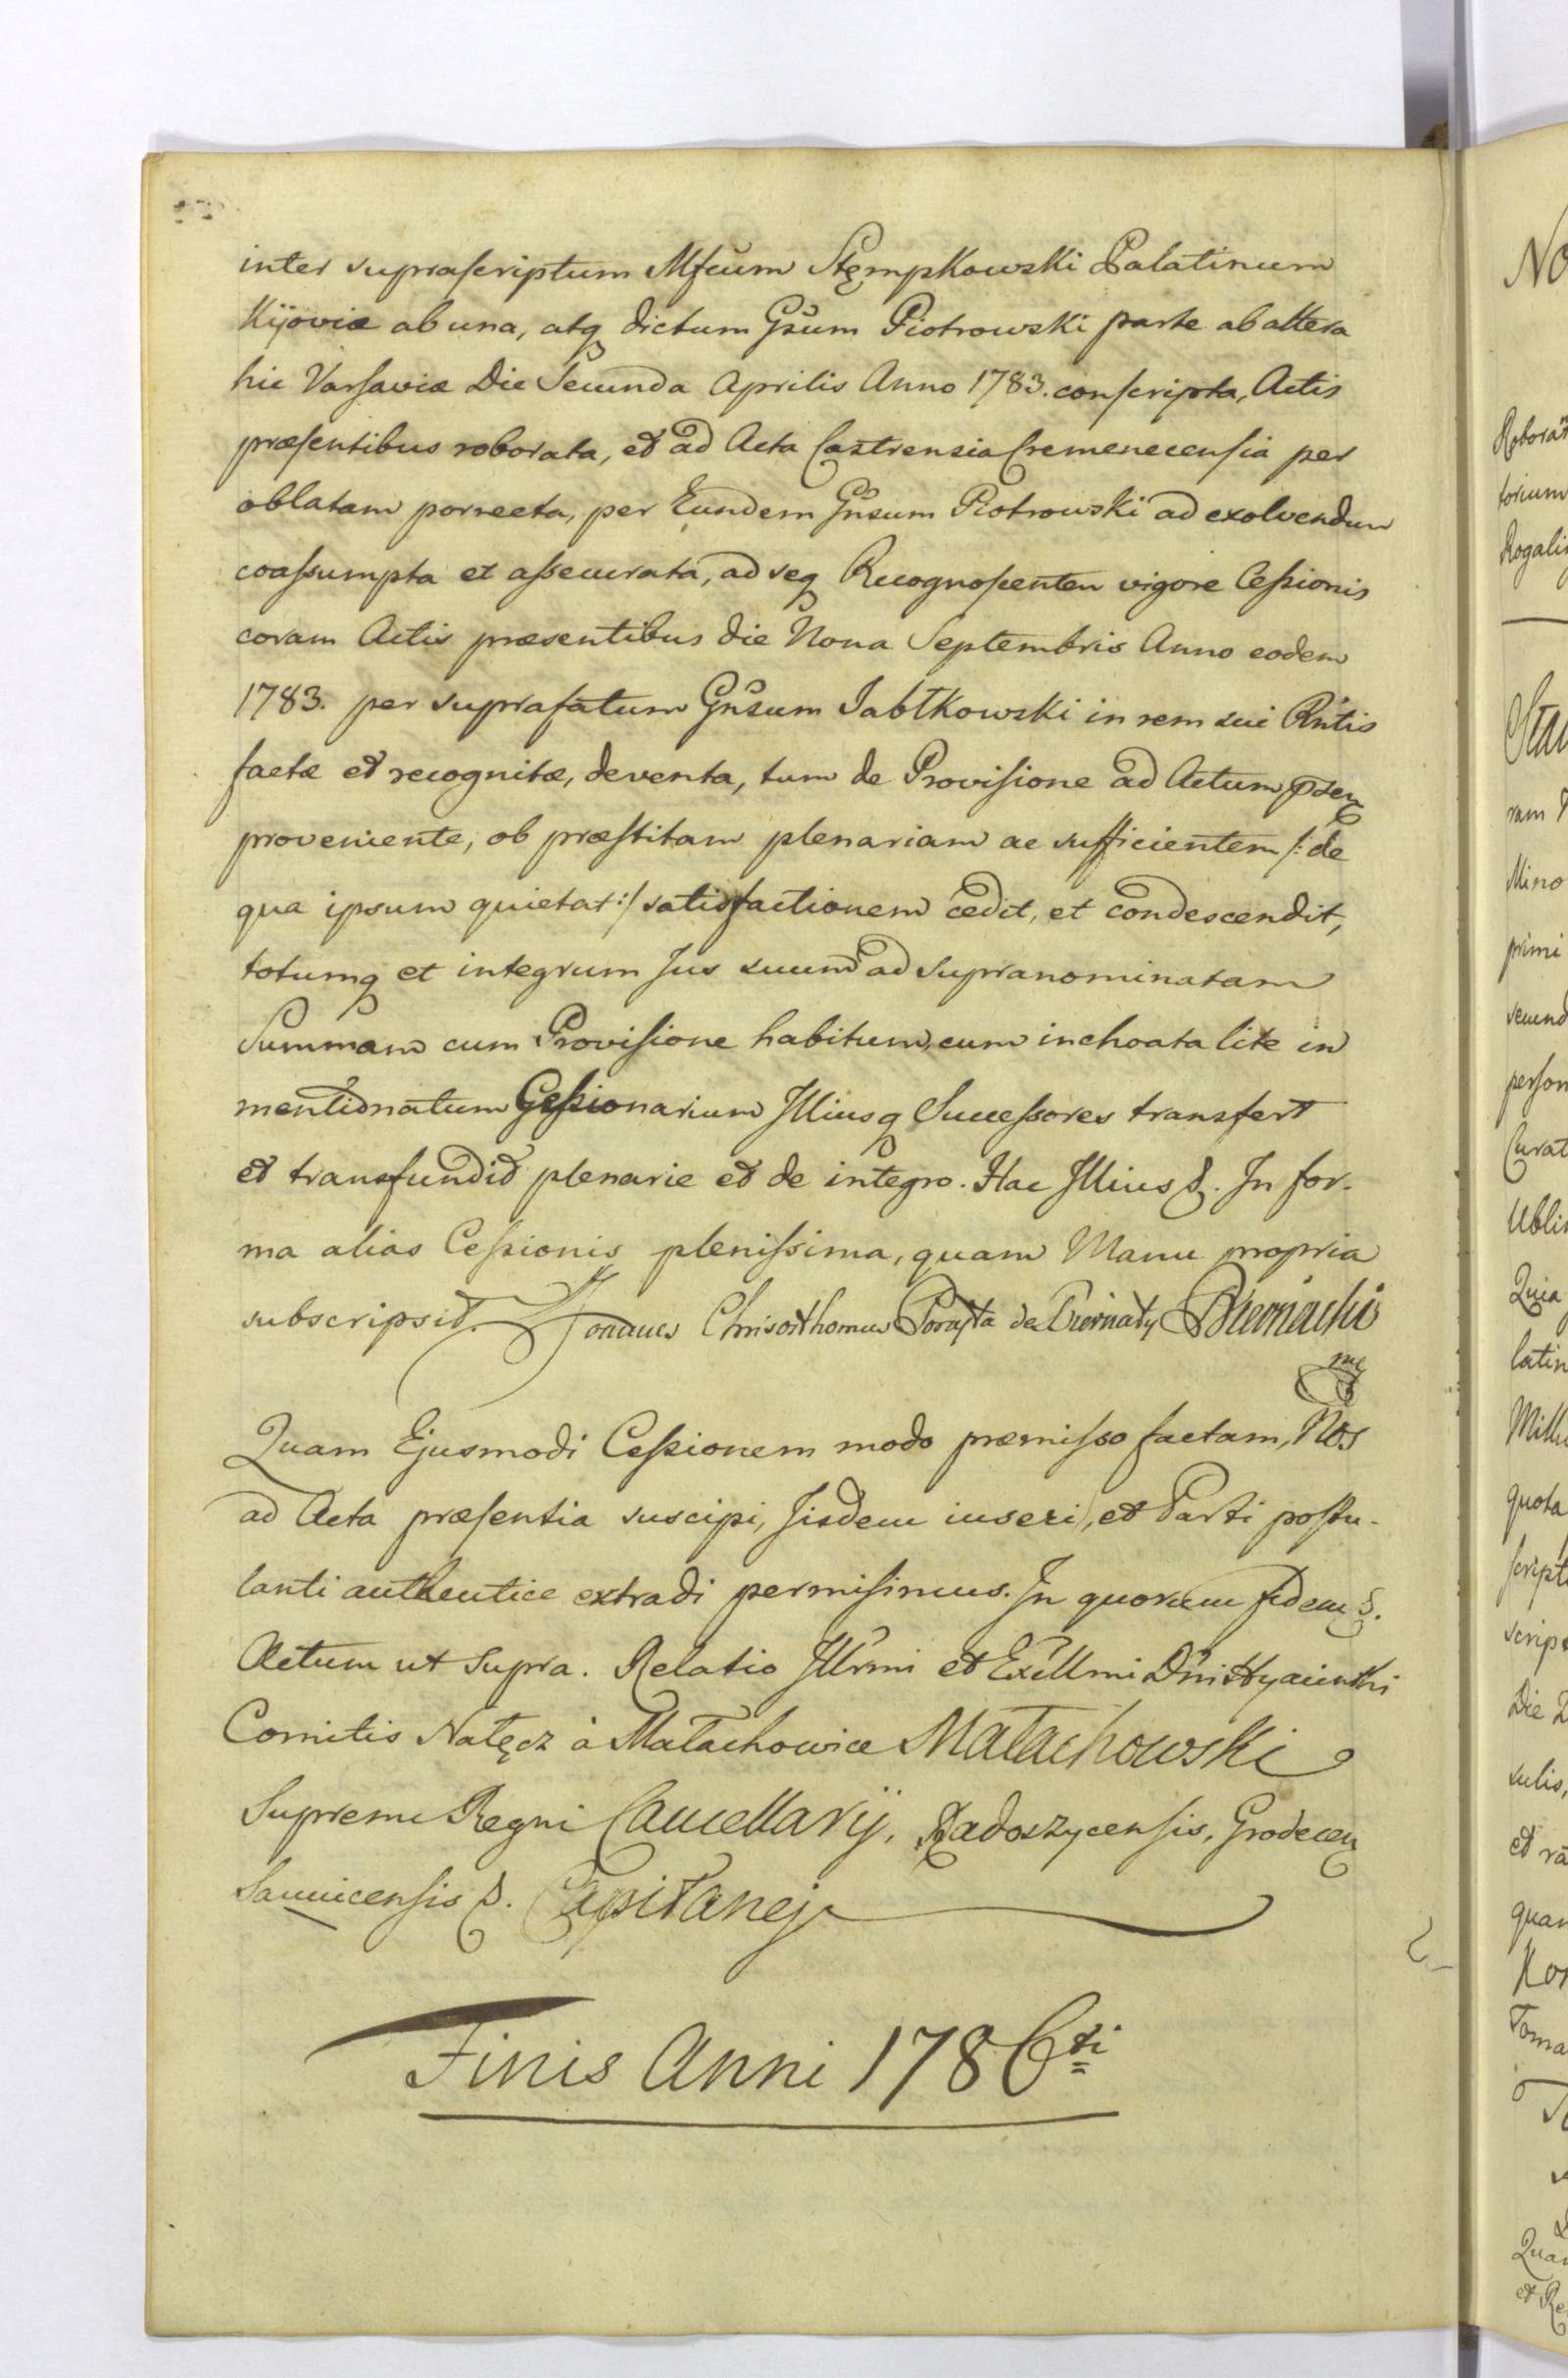 inter suprascriptum Mfcum Stępkowski Palatinum
Kijoviæ ab una, atq dictum Gsum Piotrowski parte ab altera
hic Varsaviæ Die Secunda Aprilis Anno 1783. conscripta, Actis
præsentibus roborata, et ad Acta Castrensia Cremenecensia per
oblatam porrecta, per Eundem Gnsum Piotrowski ad exolvendum
coassumpta et assecurata, ad seq Recognoscentem vigore Cessionis
coram Actis præsentibus die Nona Septembris Anno eodem
1783. per suprafatum Gnsum Jabłkowski in rem sui Rntis
factæ et recognitæ, deventa, tum de Provisione ad Actum
proveniente, ob præstitam plenariam ac sufficientem /: de
qua ipsum quietat :/ satisfactionem cedit, et condescendit,
totumq et integrum Jus suum ad supranominatam
Summam cum Provisione habitum, cum inchoata lite in
mentionatum Cessionarium Illiusq Successores transfert
et transfundit plenarie et de integro. Hac Illius &. In for-
ma alias Cessionis plenissima, quam Manu propria
subscripsit. Joannes Chrisosthomus Porajta de Biernaty Biernacki
mp
Quam Ejusmodi Cessionem modo præmisso factam, Nos
ad Acta præsentia suscipi, Iisdem inseri, et Parti postu-
lanti authentice extradi permisimus. In quorum fidem &.
Actum ut supra. Relatio Illrmi et Excllmi Dni Hyacinthi
Comitis Nałęcz à Małachowice Małachowski
Supremi Regni Cancellarij, Radoszycensis, Grodecen
Sannicensis &. Capitanej
Finis Anni 1786ti